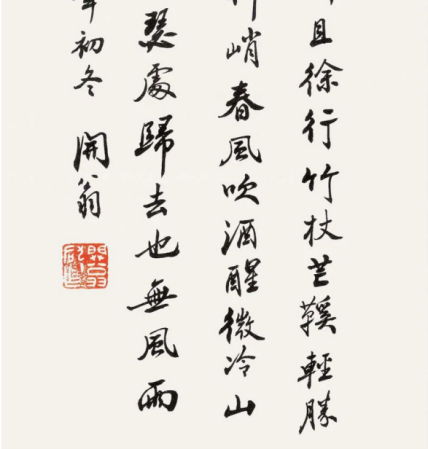 且徐行竹杖芒鞵輕勝
峭春風吹酒醒微冷山
瑟處歸去也無風雨
年初冬 開翁